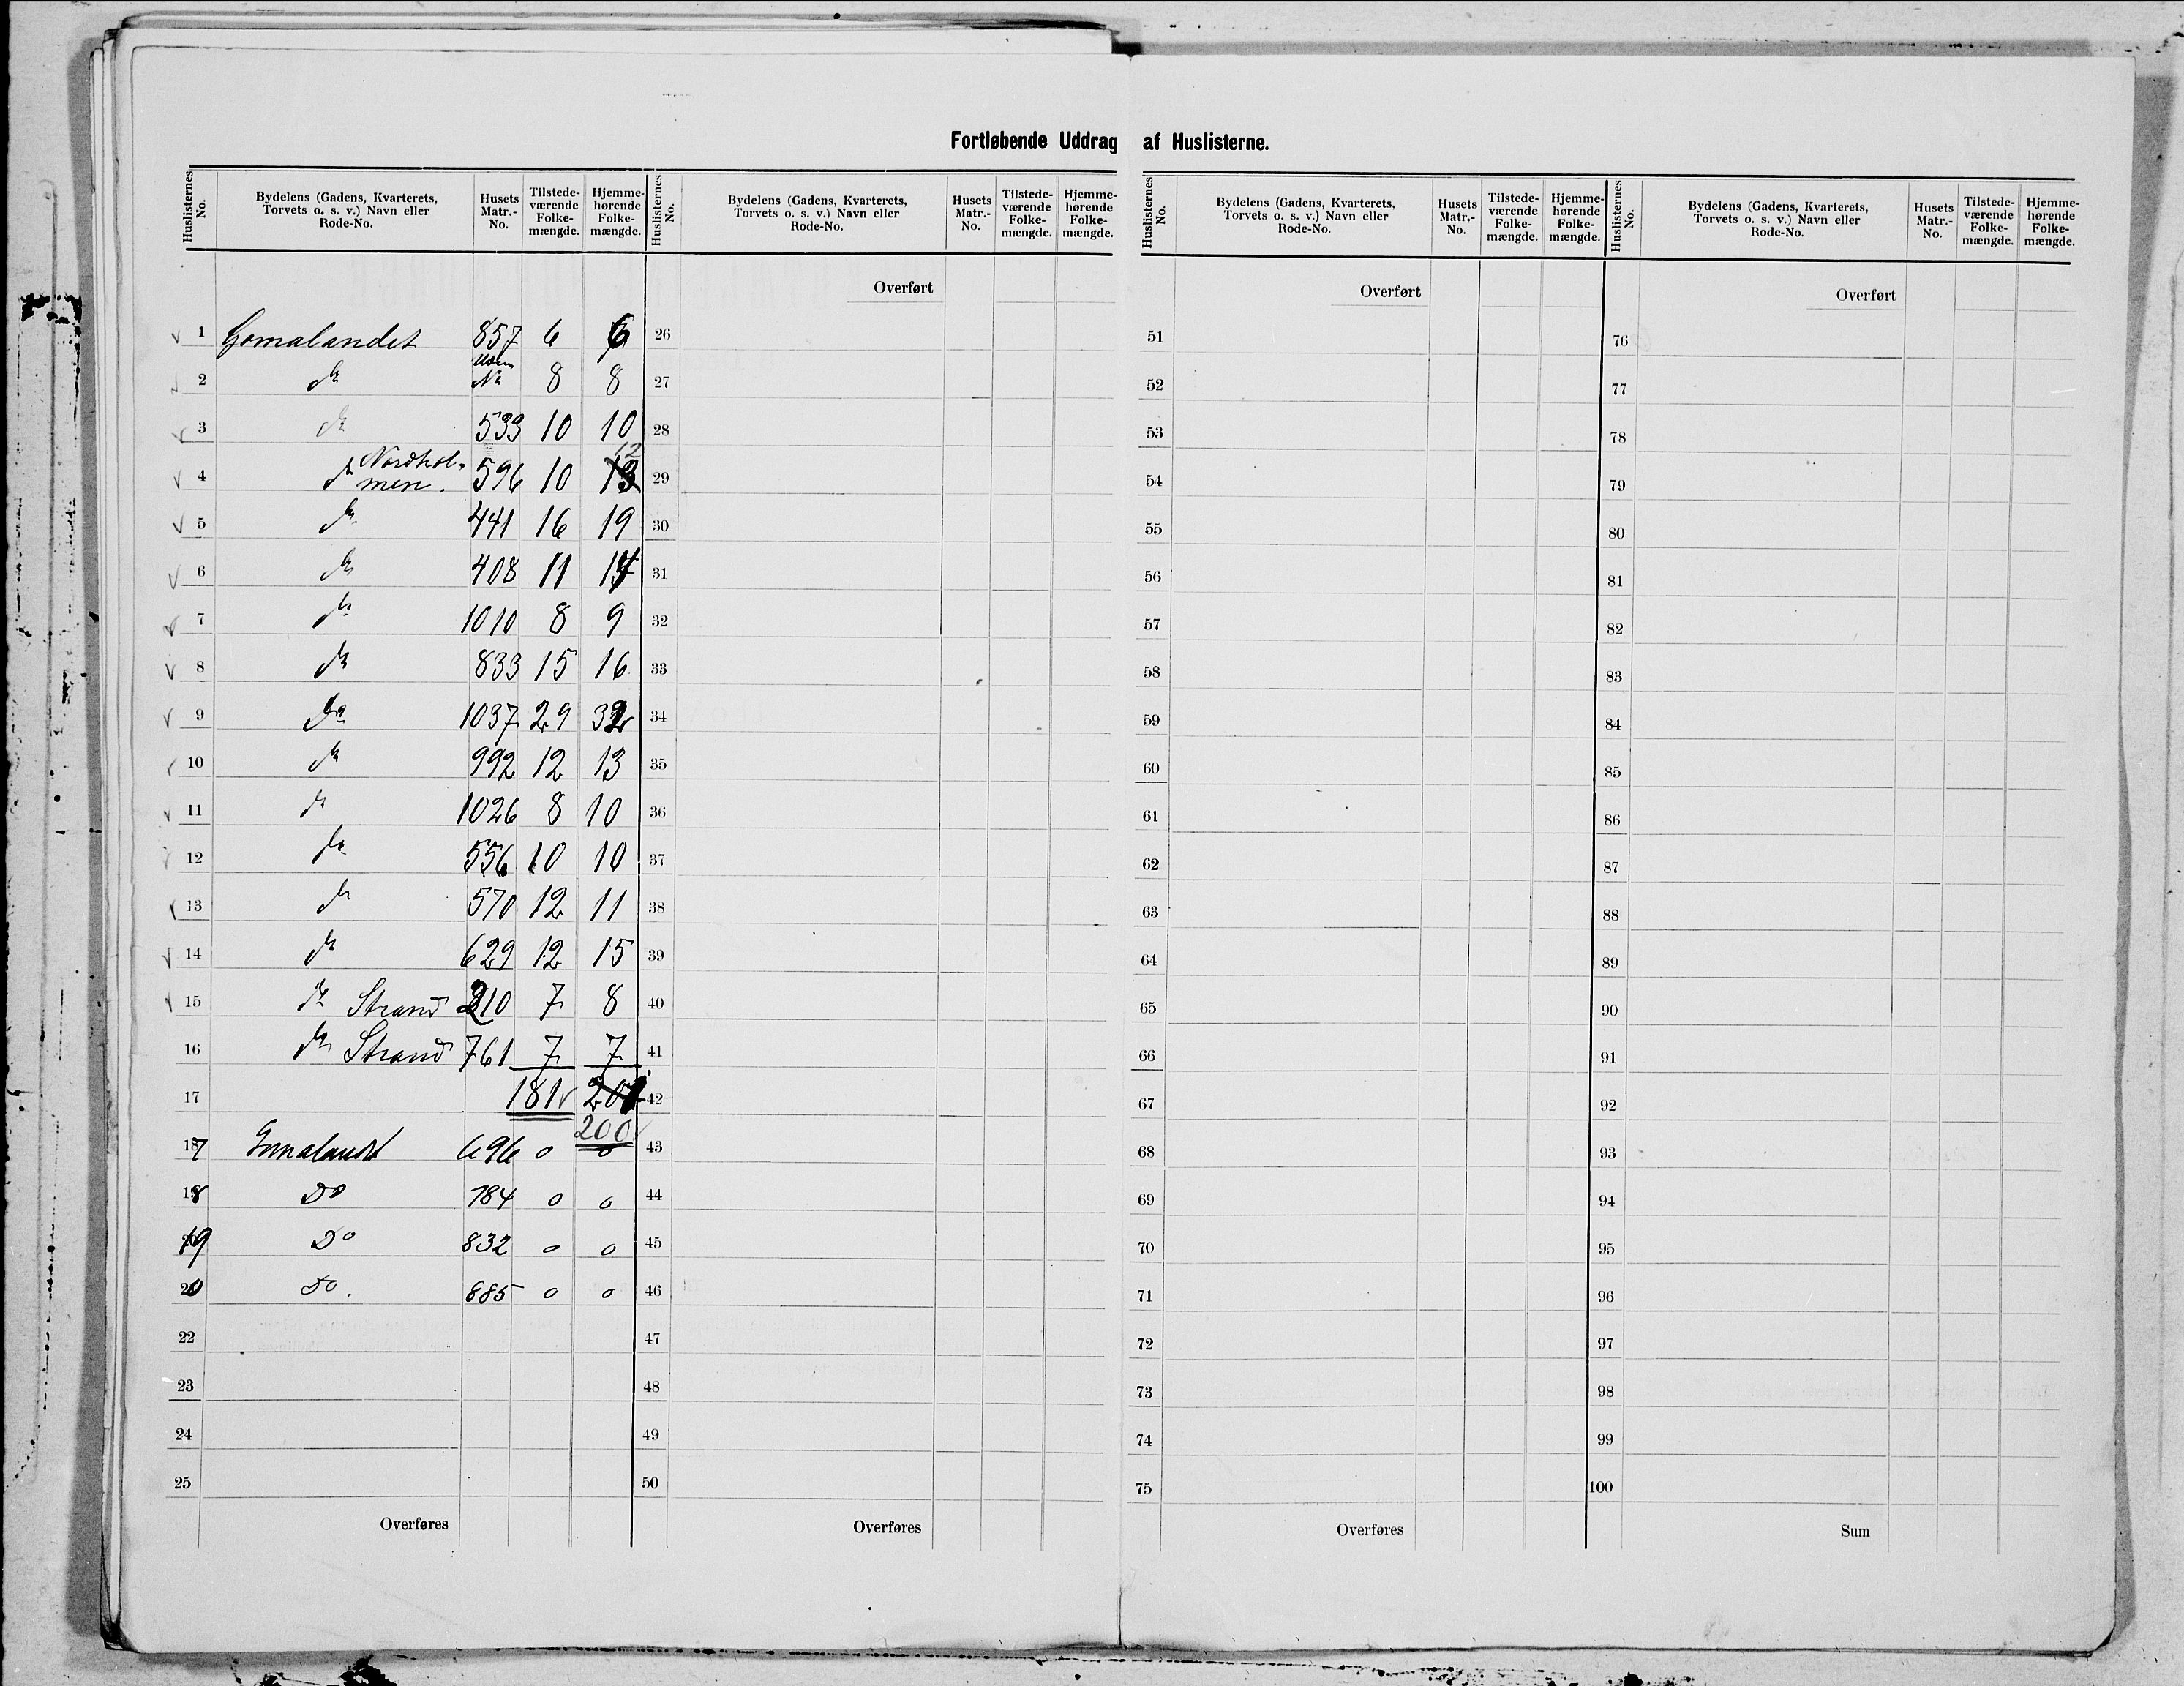 Fortløbende Uddrag af Huslisterne.
Huslisternes No. Bydelens (Gadens, Kvarterets, Torvets o. s. v.) Navn eller Rode-No. Husets Matr.-No. Tilstede-værende Folke-mængde. Hjemme-hørende Folke-mængde. Huslisternes No. Bydelens (Gadens, Kvarterets, Torvets o. s. v.) Navn eller Rode-No. Husets Matr.-No. Tilstede-værende Folke-mængde. Hjemme-hørende Folke-mængde. Huslisternes No. Bydelens (Gadens, Kvarterets, Torvets o. s. v.) Navn eller Rode-No. Husets Matr.-No. Tilstede-værende Folke-mængde. Hjemme-hørende Folke-mængde. Huslisternes No. Bydelens (Gadens, Kvarterets, Torvets o. s. v.) Navn eller Rode-No. Husets Matr.-No. Tilstede-værende Folke-mængde. Hjemme-hørende Folke-mængde.
Overført Overført Overført
1 Gomalandet 857 6 6 26 51 76
2 do uden No 8 8 27 52 77
3 do 533 10 10 28 53 78
4 do Nordhol-men. 596 10 13 12 29 54 79
5 do 441 16 19 30 55 80
6 do 408 11 14 31 56 81
7 do 1010 8 9 32 57 82
8 do 833 15 16 33 58 83
9 do 1037 29 32 34 59 84
10 do 992 12 13 35 60 85
11 do 1026 8 10 36 61 86
12 do 556 10 10 37 62 87
13 do 570 12 11 38 63 88
14 do 629 12 15 39 64 89
15 do Strand 210 7 8 40 65 90
16 do Strand 761 7 7 41 66 91
17 181 201 42 67 92
200
17 Gomalandet 696 0 0 43 68 93
18 Do 784 0 0 44 69 94
19 Do 832 0 0 45 70 95
20 Do. 885 0 0 46 71 96
22 47 72 97
23 48 73 98
24 49 74 99
25 50 75 100
Overføres Overføres Overføres Sum